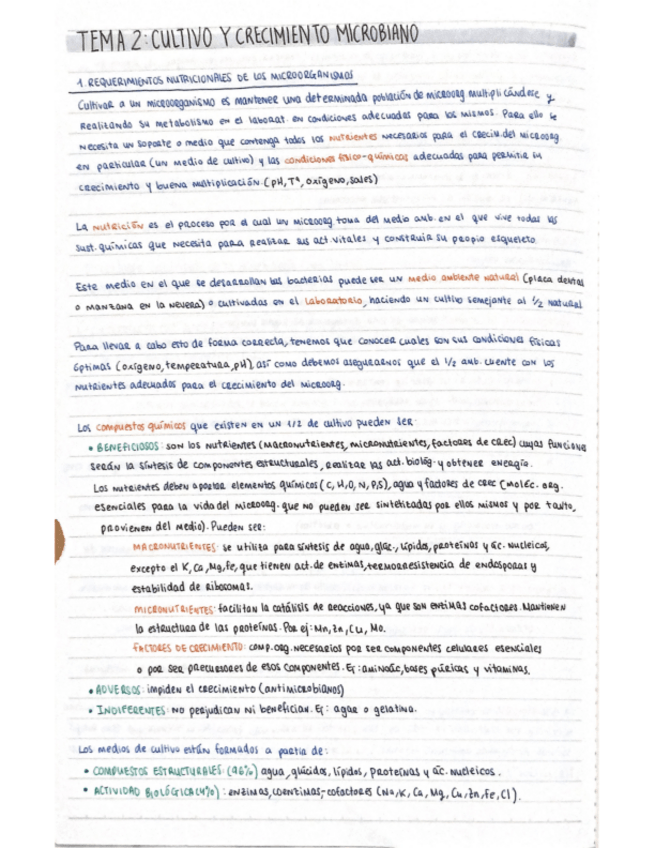 TEMA 2: CULTIVO Y CRECIMIENTO MICROBIANO
1. REQUERIMIENTOS NUTRICIONALES DE LOS MICROORGANISMOS
Cultivar a un microorganismo es mantener una determinada población de microorg multiplicándose y
realizando su metabolismo en el laborat. en condiciones adecuadas para los mismos. Para ello se
necesita un soporte o medio que contenga todos los nutrientes necesarios para el crecim. del microorg
en particular (un medio de cultivo) y las condiciones físico-químicas adecuadas para permitir su
crecimiento y buena multiplicación. (pH, Tª, oxígeno, sales)
La nutrición es el proceso por el cual un microorg toma del medio amb. en el que vive todas las
sust. químicas que necesita para realizar sus act. vitales y construir su propio esqueleto
Este medio en el que se desarrollan las bacterias puede ser un medio ambiente natural (placa dental
o manzana en la nevera) o cultivadas en el laboratorio, haciendo un cultivo semejante al 1/2 natural
Para llevar a cabo esto de forma correcta, tenemos que conocer cuales son sus condiciones físicas
óptimas (oxígeno, temperatura, pH), así como debemos asegurarnos que el 1/2 amb. cuente con los
nutrientes adecuados para el crecimiento del microorg.
Los compuestos químicos que existen en un 1/2 de cultivo pueden ser:
• BENEFICIOSOS: son los nutrientes (macronutrientes, micronutrientes, factores de crec) cuyas funciones
serán la síntesis de componentes estructurales, realizar las act. biológ. y obtener energía.
Los nutrientes deben aportar elementos químicos (C, H, O, N, P, S), agua y factores de crec (moléc. org.
esenciales para la vida del microorg. que no pueden ser sintetizadas por ellos mismos y por tanto,
provienen del medio). Pueden ser:
MACRONUTRIENTES: se utiliza para síntesis de agua, glúc., lípidos, proteínas y ác. nucleicos,
excepto el K, Ca, Mg, Fe, que tienen act. de enzimas, termorresistencia de endosporas y
estabilidad de ribosomas.
MICRONUTRIENTES: facilitan la catálisis de reacciones, ya que son enzimas cofactores. Mantienen
la estructura de las proteínas. Por ej: Mn, Zn, Cu, Mo.
FACTORES DE CRECIMIENTO: comp. org. necesarios por ser componentes celulares esenciales
o por ser precursores de esos componentes. Ej: aminoác, bases púricas y vitaminas.
• ADVERSOS: impiden el crecimiento (antimicrobianos)
• INDIFERENTES: no perjudican ni benefician. Ej: agar o gelatina.
Los medios de cultivo están formados a partir de:
• COMPUESTOS ESTRUCTURALES: (96%) agua, glúcidos, lípidos, proteínas y ác. nucleicos.
• ACTIVIDAD BIOLÓGICA (4%): enzimas, coenzimas, cofactores (Na, K, Ca, Mg, Cu, Zn, Fe, Cl).